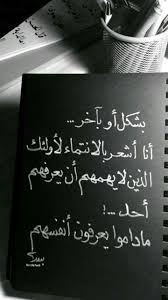 بشكل أو بآخر ...
أنا أشعر بالانتماء لأولئك
الذين لا يهمهم أن يعرفهم
أحد ...!
ماداموا يعرفون أنفسهم